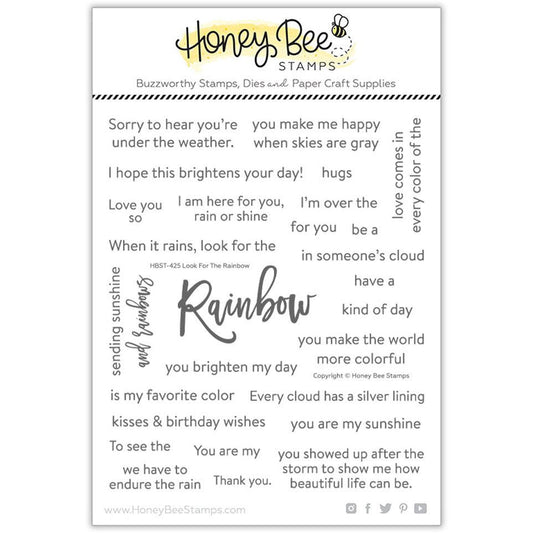 Honey Bee
STAMPS
Buzzworthy Stamps, Dies and Paper Craft Supplies
Sorry to hear you're
under the weather.
you make me happy
when skies are gray
love comes in
every color of the
I hope this brightens your day!
hugs
Love you
so
I am here for you,
rain or shine
I'm over the
for you
be a
When it rains, look for the
in someone's cloud
HBST-425 Look For The Rainbow
sending sunshine
and rainbows
Rainbow
have a
kind of day
you make the world
more colorful
Copyright © Honey Bee Stamps
you brighten my day
is my favorite color
Every cloud has a silver lining
kisses & birthday wishes
you are my sunshine
To see the
You are my
you showed up after the
storm to show me how
beautiful life can be.
we have to
endure the rain
Thank you.
www.HoneyBeeStamps.com